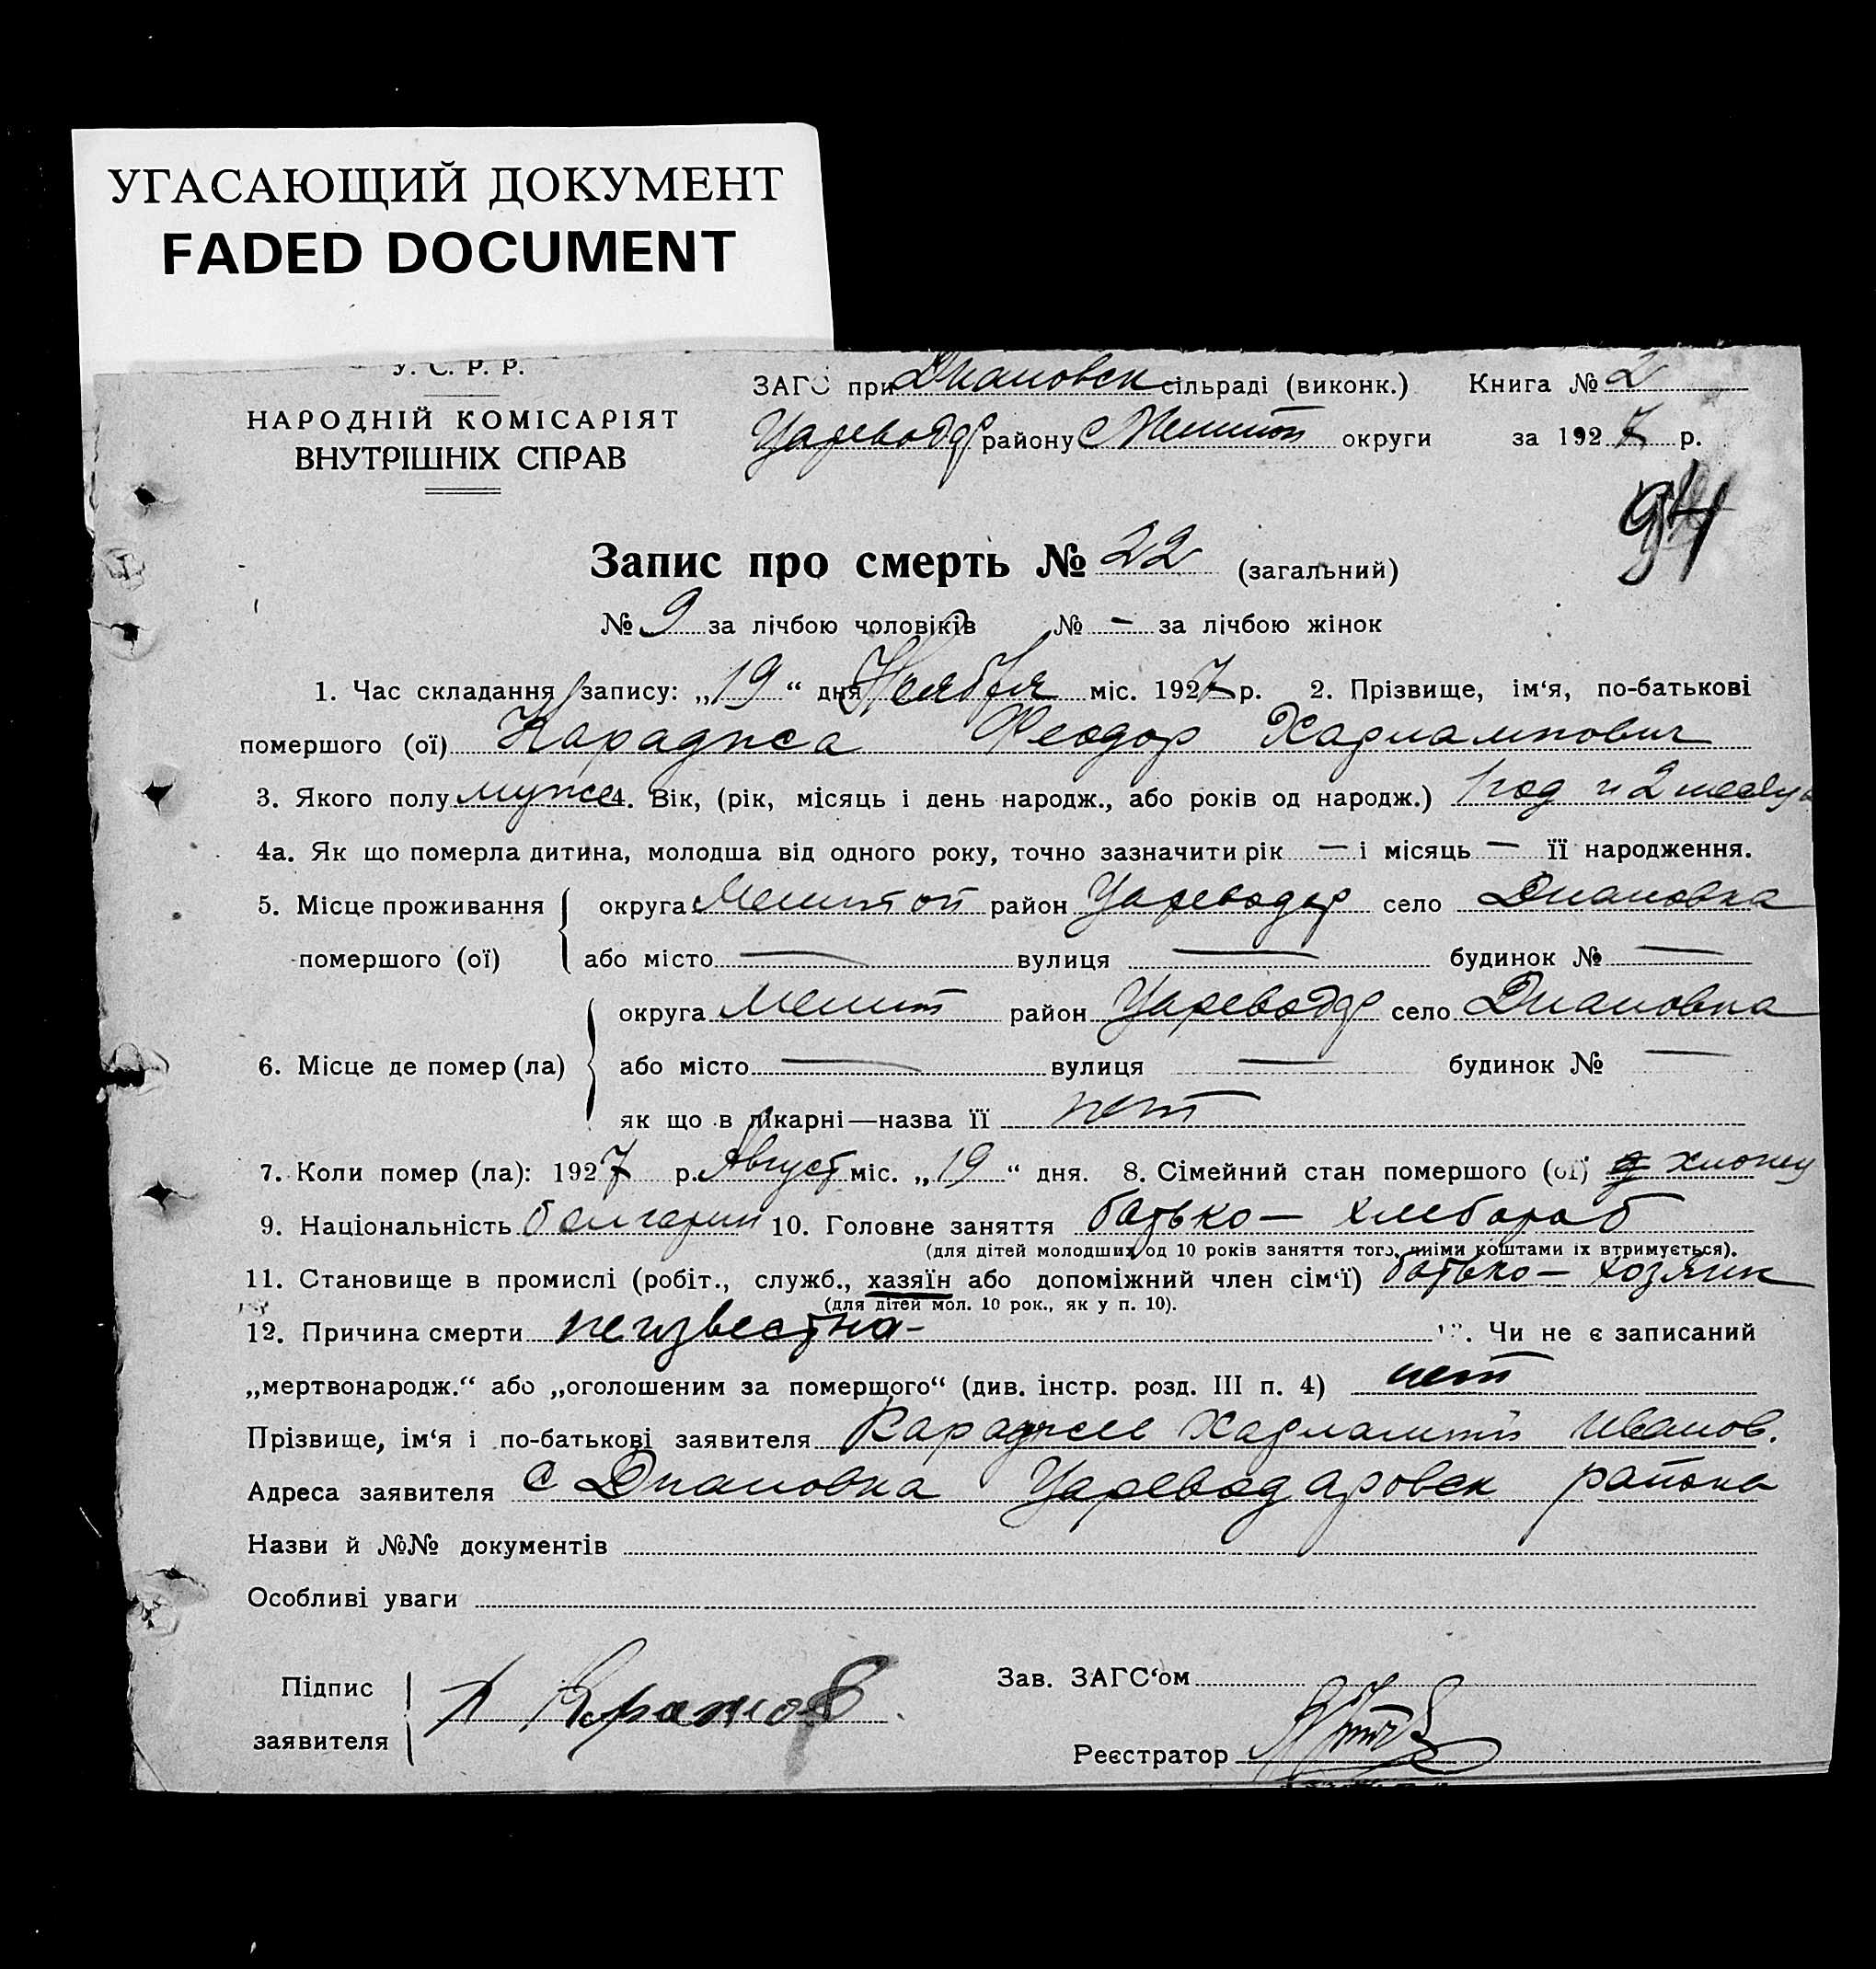 УГАСАЮЩИЙ ДОКУМЕНТ
FADED DOCUMENT
У. С. Р. Р.
НАРОДНІЙ КОМІСАРІЯТ
ВНУТРІШНІХ СПРАВ
ЗАГС при Диановск сільраді (виконк.) Книга № 2
Цареводар району Мелитоп округи за 1927 р.
94
Запис про смерть № 22 (загальний)
№ 9 за лічбою чоловіків № — за лічбою жінок
1. Час складання запису: „19“ дня Ноября міс. 1927 р. 2. Прізвище, ім‘я, по-батькові
помершого (ої) Караджа Феодор Харлампович
3. Якого полу мужс 4. Вік, (рік, місяць і день народж., або років од народж.) 1 год и 2 месяца
4а. Як що померла дитина, молодша від одного року, точно зазначити рік — і місяць — її народження.
5. Місце проживання помершого (ої) округа Мелитоп район Цареводар село Диановка
або місто — вулиця — будинок № —
6. Місце де помер (ла) округа Мелит район Цареводар село Диановка
або місто — вулиця — будинок № —
як що в лікарні—назва її нет
7. Коли помер (ла): 1927 р. Август міс. „19“ дня. 8. Сімейний стан помершого (ої)
9. Національність болгарин 10. Головне заняття батько — хлебороб
(для дітей молодших од 10 років заняття того, чиїми коштами їх втримується).
11. Становище в промислі (робіт., служб., хазяїн або допоміжний член сім‘ї) батько — хозяин
(для дітей мол. 10 рок., як у п. 10).
12. Причина смерти неизвестна - 13. Чи не є записаний
„мертвонародж.“ або „оголошеним за помершого“ (див. інстр. розд. III п. 4) нет
Прізвище, ім‘я і по-батькові заявителя Харлампий Иванов.
Адреса заявителя с Диановка Цареводаровск района
Назви й №№ документів
Особливі уваги
Підпис заявителя
Зав. ЗАГС‘ом
Реєстратор